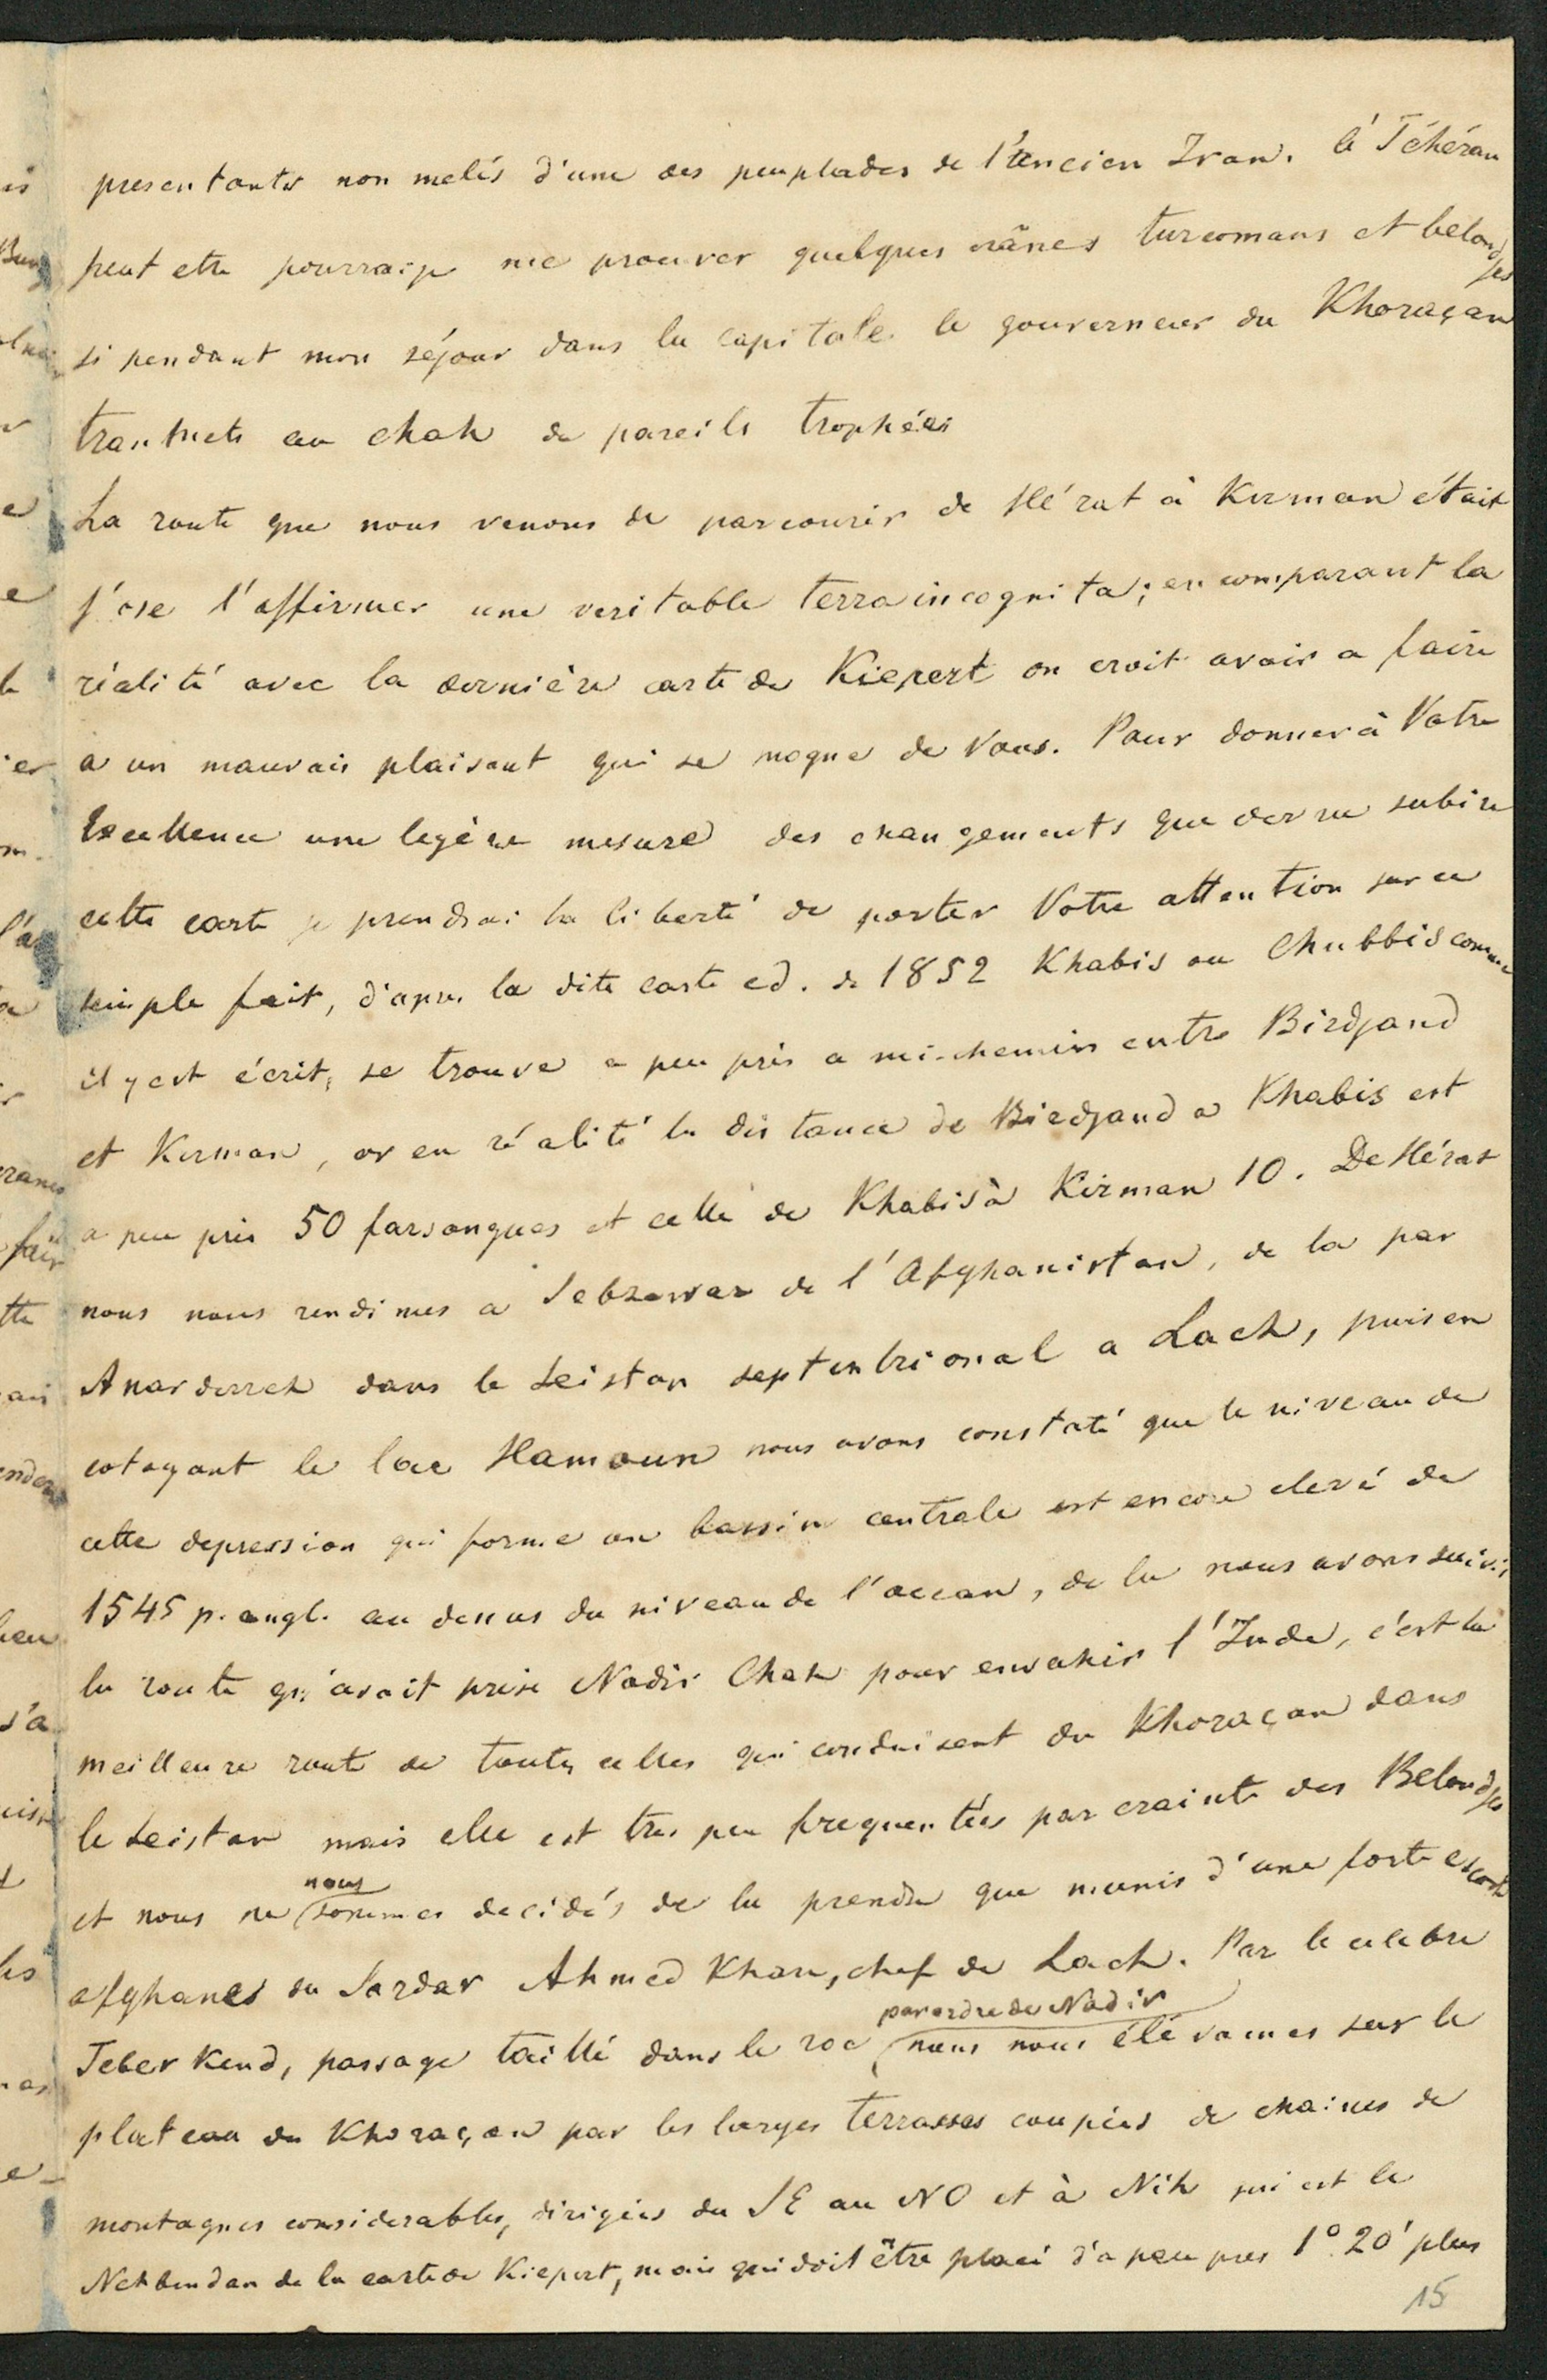 presentants non melés d'une des peuplades de l'ancien Iran. à Téhéran
peut etre pourraije me procurer quelques crânes turcomans et beloudjes
si pendant mon séjour dans la capitale le gouverneur du Khoraçan
transmets au chah de pareils trophées
La route que nous venons de parcourir de Hérat à Kirman était
j'ose l'affirmer une veritable terra incognita; en comparant la
réalité avec la dernière carte de Kiepert on croit avoir a faire
a un mauvais plaisant qui se moque de Vous. Pour donner à Votre
Excellence une legère mesure des changements que devra subire
cette carte je prendrai la liberté de porter Votre attention sur ce
simple fait, d'apres la dite carte ed. de 1852 Khabis ou Chubbis comme
il y est écrit, se trouve a peu près a mi-chemin entre Birdjand
et Kirman, or en réalité la distance de Birdjand a Khabis est
a peu près 50 farsangues et celle de Khabis à Kirman 10. De Hérat
nous nous rendimes a Sebzewar de l'Afghanistan, de la par
Anarderreh dans le Seistan septentrional a Lach, puis en
cotoyant le lac Hamoun nous avons constaté que le niveau de
cette depression qui forme un bassin centrale est encore elevé de
1545 p. angl. au dessus du niveau de l'ocean, de la nous avons suivi
la route qu'avait prise Nadir Chah pour envahir l'Inde, c'est la
meilleure route de toutes celles qui conduisent du Khoraçan dans
le Seistan mais elle est tres peu frequentées par crainte des Beloudjes
et nous ne nous sommes decidés de la prendre que munis d'une forte escorte
afghanes du Sardar Ahmed Khan, chef de Lach. Par le celebre
Teber Kend, passage taillé dans le roc par ordre de Nadir nous nous élévames sur le
plateau du Khoraçan par les larges terrasses coupées de chaines de
montagnes considerables, dirigées du SE au NO et à Nih qui est le
Nehbendan de la carte de Kiepert, mais qui doit être placé d'a peu pres 1° 20' plus
15